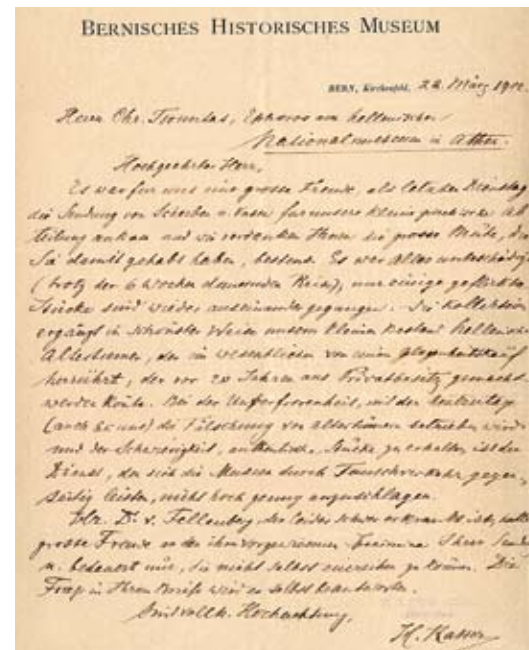 BERNISCHES HISTORISCHES MUSEUM
BERN, Kirchenfeld, 22. März 1900.
Herrn Chr. Tsountas, Ephoros am hellenischen
Nationalmuseum in Athen.
Hochgeehrter Herr,
Es war für uns eine grosse Freude, als letzten Dienstag
die Sendung von Scherben u. Vasen für unsere kleine Ab
teilung ankam und wir verdanken Ihnen die grosse Mühe, die
Sie damit gehabt haben, bestens. Es war Alles unbeschädigt
(trotz der 6 Wochen dauernden Reise), nur einige geflickte
Stücke sind wieder auseinander gegangen. Die Kollektion
ergänzt in schönster Weise unsern kleinen Bestand hellenischer
Altertümer, der im wesentlichen von einem Gelegenheitskauf
herrührt, der vor 20 Jahren aus Privatbesitz gemacht
werden konnte. Bei der Unverfrorenheit, mit der heutzutage
(auch bei uns) die Fälschung von Altertümern betrieben wird
und der Schwierigkeit, authentische Stücke zu erhalten ist der
Dienst, den sich die Museen durch Tauschverkehr gegen-
seitig leisten, nicht hoch genug anzuschlagen.
Hr. Dr. v. Fellenberg, der leider schwer erkrankt ist, hatte
grosse Freude an den ihm vorgewiesenen Ihrer Sendung
u. bedauert nur, sie nicht selbst einreihen zu können. Die
Frage in Ihrem Briefe wird er selbst beantworten.
Hochachtung,
H. Kasser